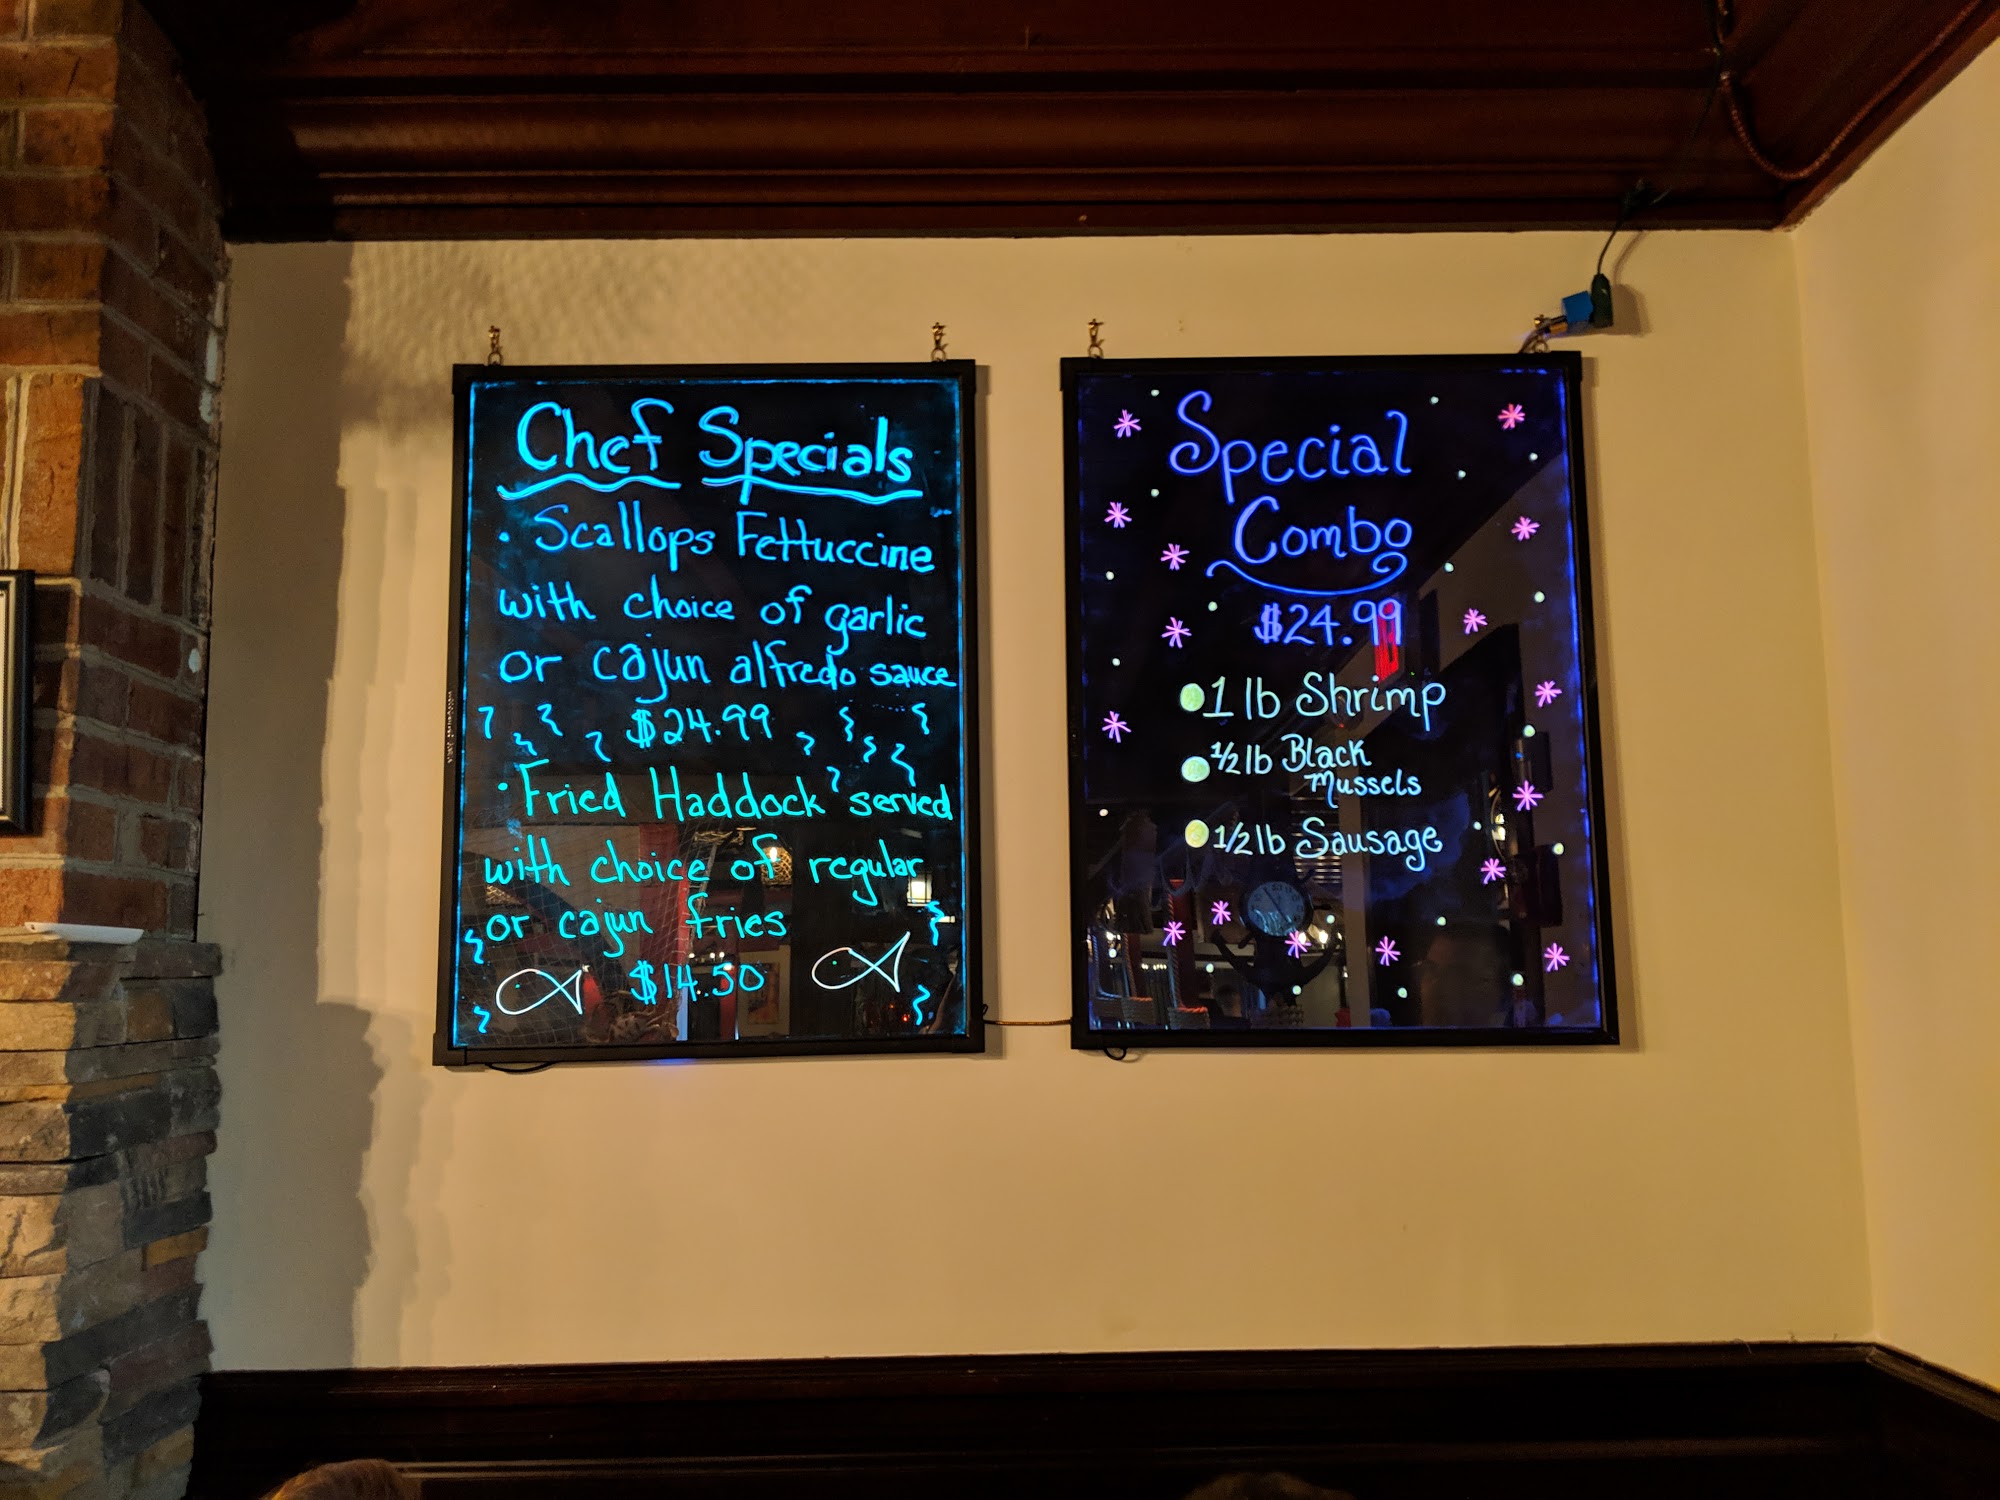 Chef Specials
· Scallops Fettuccine
with choice of garlic
or cajun alfredo sauce
$24.99
· Fried Haddock served
with choice of regular
or cajun fries
$14.50
Special
Combo
$24.99
1 lb Shrimp
1/2 lb Black
Mussels
1/2 lb Sausage